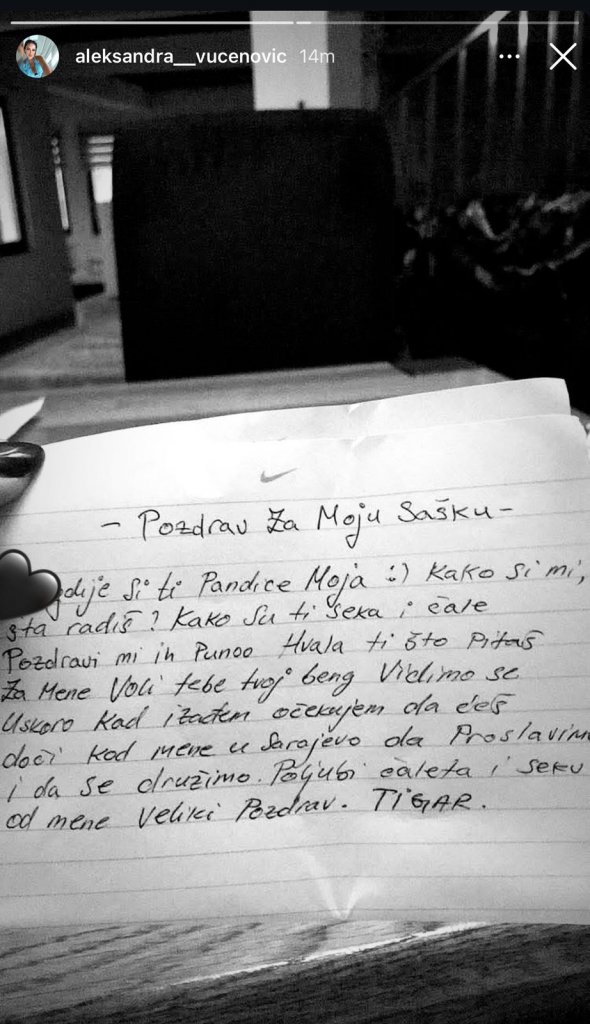 aleksandra__vucenovic 14m
- Pozdrav Za Moju Sašku -
gdije si ti Pandice Moja :) Kako si mi,
šta radiš? Kako su ti seka i ćale
Pozdravi mi ih Punoo Hvala ti što Pitaš
Za Mene Voli tebe tvoj beng Vidimo se
Uskoro kad izađem očekujem da ćeš
doći kod mene u Sarajevo da Proslavimo
i da se družimo. Poljubi ćaleta i seku
od mene Veliki Pozdrav. TIGAR.